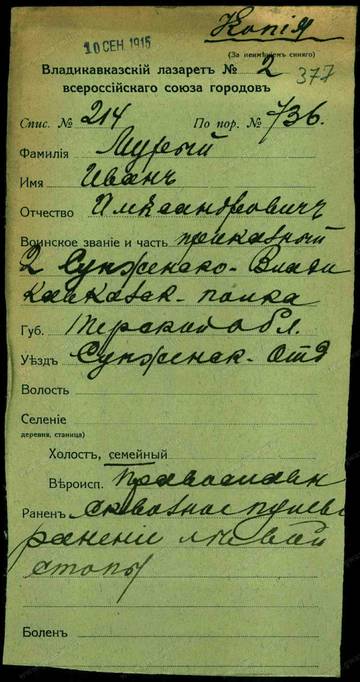 Копія
10 СЕН 1915
(За неимѣнiемъ синяго)
Владикавказскій лазаретъ № 2
377
всероссійскаго союза городовъ
Спис. № 214 По пор. № 736.
Фамилія Мурый
Имя Иванъ
Отчество Александровичъ
Воинское званіе и часть приказный
2 Сунженско-Влади
кавказск. полка
Губ. Терской обл.
Уѣздъ Сунженск. Отд
Волость
Селеніе
деревня, станица)
Холостъ, семейный
Вѣроисп. Православн
Раненъ сквозное пулев
раненіе лѣвой
стопы
Боленъ